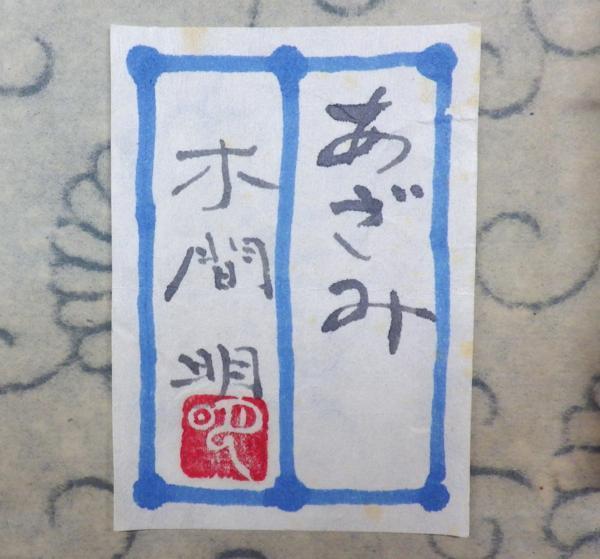 あざみ
木間 明